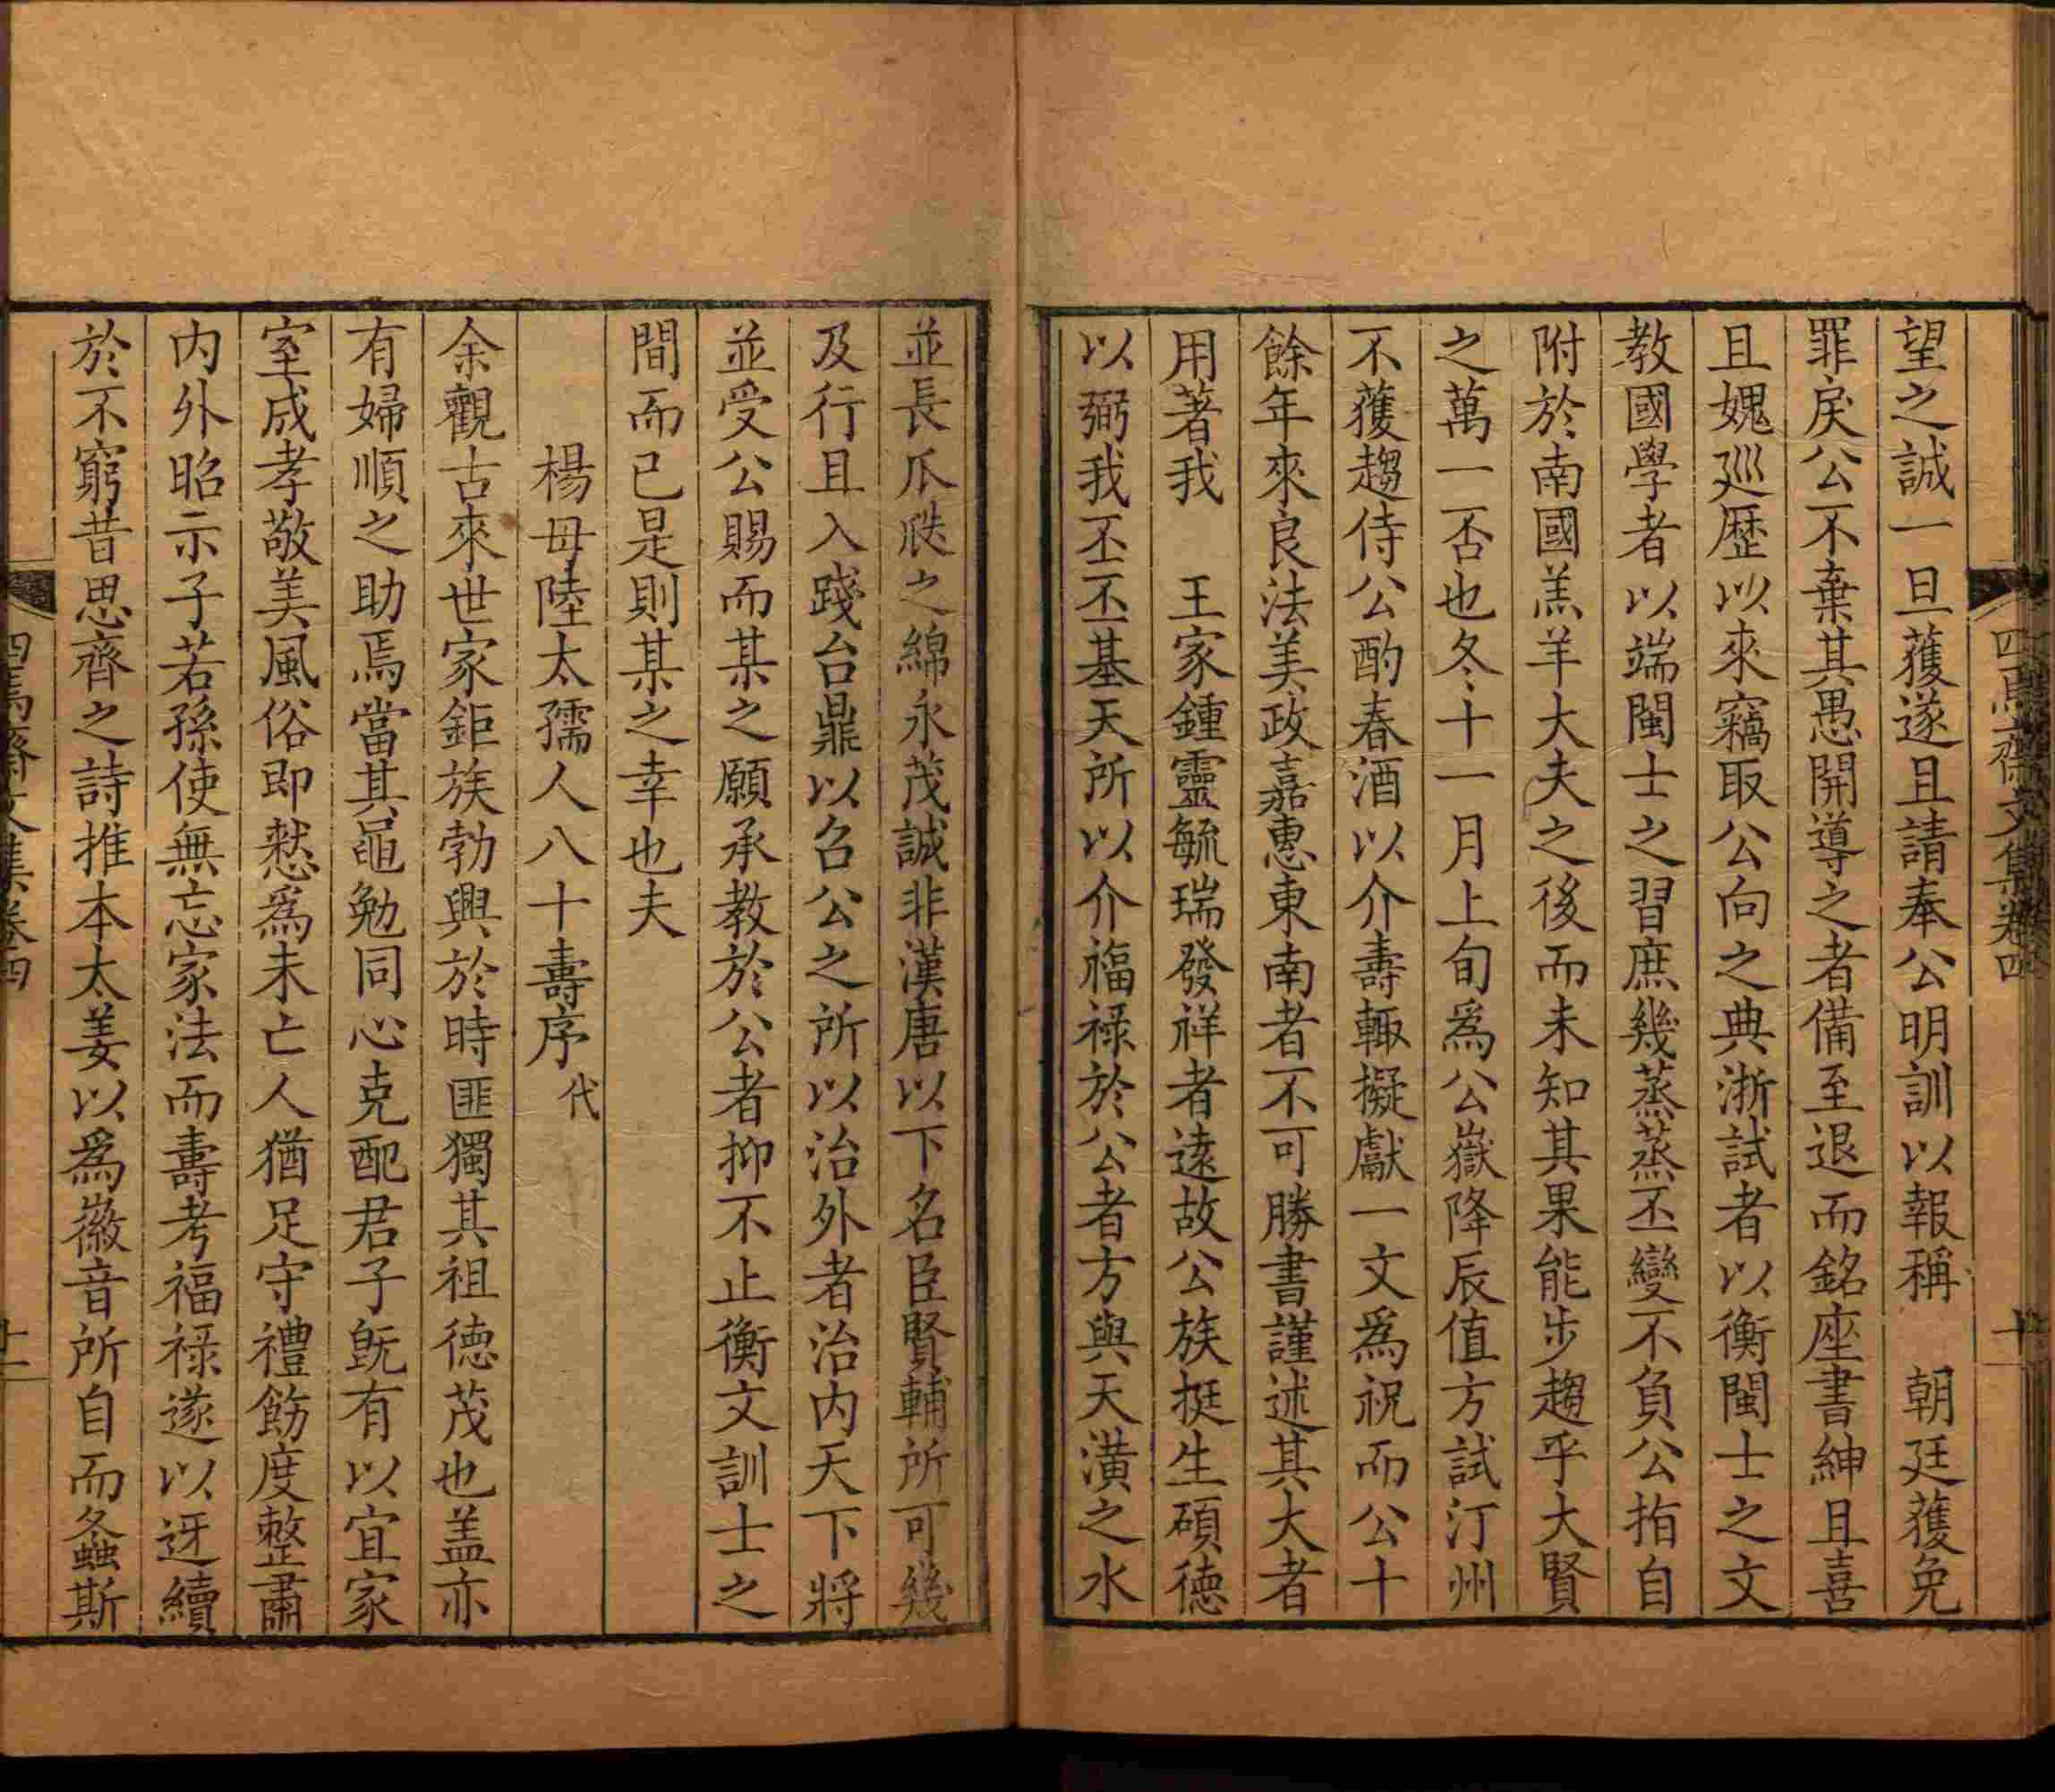 望之誠一旦獲遂且請奉公明訓以報稱　朝廷獲免
罪戾公不棄其愚開導之者備至退而銘座書紳且喜
且媿廵歷以來竊取公向之典浙試者以衡閩士之文
教國學者以端閩士之習庶幾蒸蒸丕變不負公指自
附於南國羔羊大夫之後而未知其果能步趨乎大賢
之萬一否也冬十一月上旬爲公嶽降辰值方試汀州
不獲趨侍公酌春酒以介壽輙擬獻一文爲祝而公十
餘年來良法美政嘉惠東南者不可勝書謹述其大者
用著我　王家鍾靈毓瑞發祥者遠故公族挺生碩德
以弼我丕丕基天所以介福祿於公者方與天潢之水
並長瓜瓞之綿永茂誠非漢唐以下名臣賢輔所可幾
及行且入踐台鼎以名公之所以治外者治内天下將
並受公賜而某之願承教於公者抑不止衡文訓士之
間而已是則某之幸也夫
楊母陸太孺人八十壽序代
余觀古來世家鉅族勃興於時匪獨其祖德茂也盖亦
有婦順之助焉當其黽勉同心克配君子旣有以宜家
室成孝敬美風俗即憖爲未亡人猶足守禮飭度整肅
内外昭示子若孫使無忘家法而壽考福祿遂以迓續
於不窮昔思齊之詩推本太姜以爲徽音所自而螽斯
四焉齋文集卷四
十
四焉齋文集卷四
十一